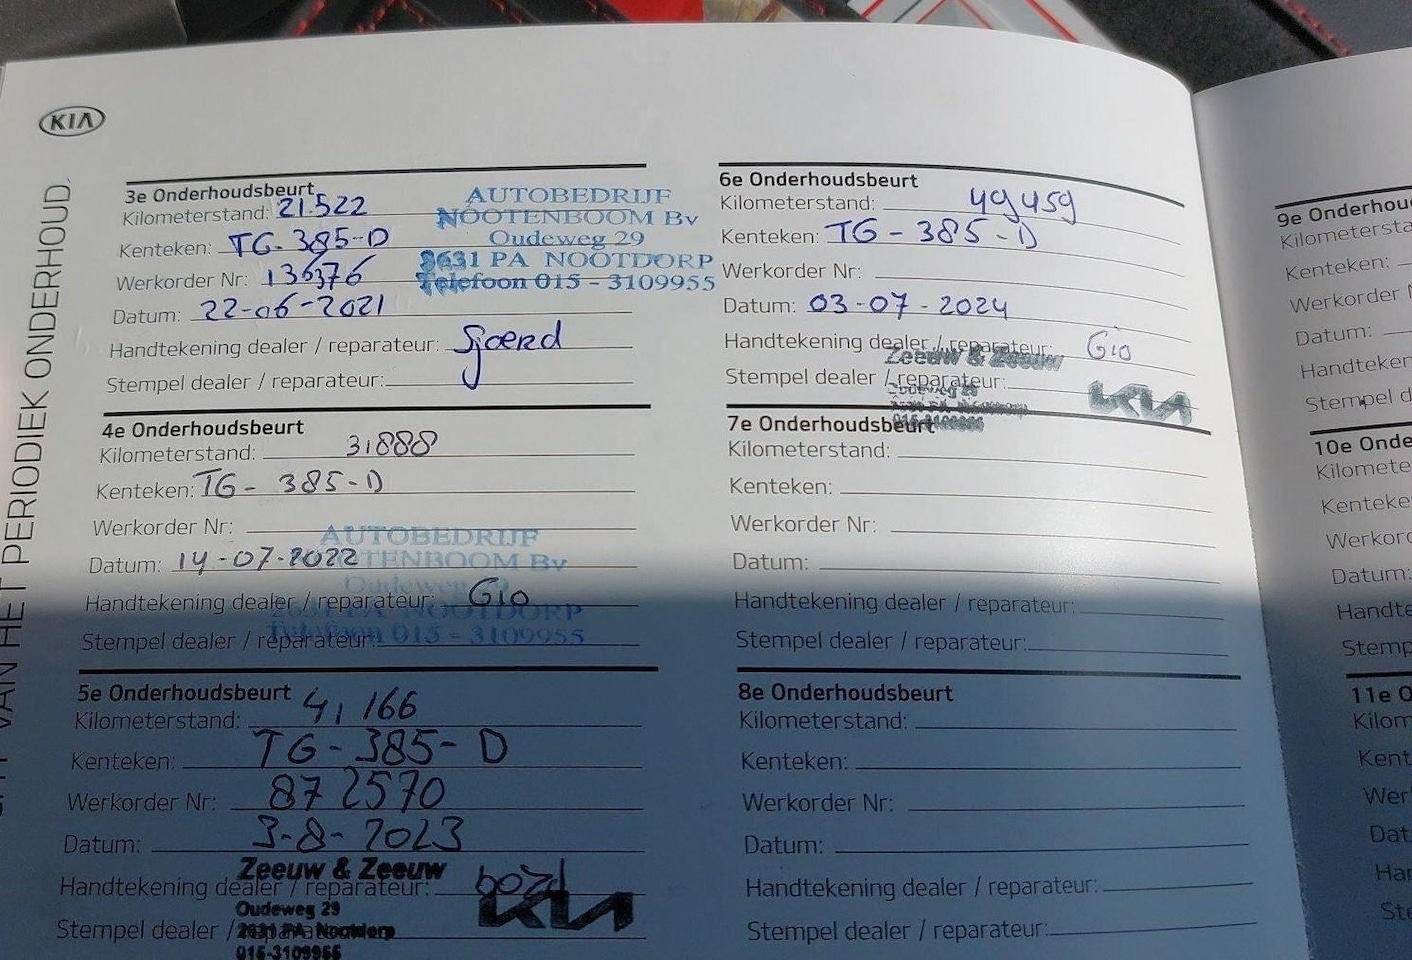 KIA
VAN HET PERIODIEK ONDERHOUD
3e Onderhoudsbeurt
Kilometerstand: 21.522
Kenteken: TG-385-D
Werkorder Nr: 136376
Datum: 22-06-2021
Handtekening dealer / reparateur: Sjoerd
Stempel dealer / reparateur:
AUTOBEDRIJF
NOOTENBOOM Bv
Oudeweg 29
2631 PA NOOTDORP
Telefoon 015 - 3109955
4e Onderhoudsbeurt
Kilometerstand: 31888
Kenteken: TG-385-D
Werkorder Nr:
Datum: 14-07-2022
Handtekening dealer / reparateur: Gio
Stempel dealer / reparateur:
AUTOBEDRIJF
NOOTENBOOM Bv
Oudeweg 29
2631 PA NOOTDORP
Telefoon 015 - 3109955
5e Onderhoudsbeurt
Kilometerstand: 41166
Kenteken: TG-385-D
Werkorder Nr: 872570
Datum: 3-8-2023
Handtekening dealer / reparateur:
Stempel dealer / reparateur:
Zeeuw & Zeeuw
Oudeweg 29
2631 PA Nootdorp
015-3109955
KIA
6e Onderhoudsbeurt
Kilometerstand: 49459
Kenteken: TG-385-D
Werkorder Nr:
Datum: 03-07-2024
Handtekening dealer / reparateur: Gio
Stempel dealer / reparateur:
Zeeuw & Zeeuw
Oudeweg 29
2631 PA Nootdorp
015-3109955
KIA
7e Onderhoudsbeurt
Kilometerstand:
Kenteken:
Werkorder Nr:
Datum:
Handtekening dealer / reparateur:
Stempel dealer / reparateur:
8e Onderhoudsbeurt
Kilometerstand:
Kenteken:
Werkorder Nr:
Datum:
Handtekening dealer / reparateur:
Stempel dealer / reparateur:
9e Onderhou
Kilometersta
Kenteken:
Werkorder N
Datum:
Handteken
Stempel d
10e Onde
Kilomete
Kenteke
Werkor
Datum:
Handte
Stemp
11e O
Kilom
Kent
Wer
Dat
Han
Ste